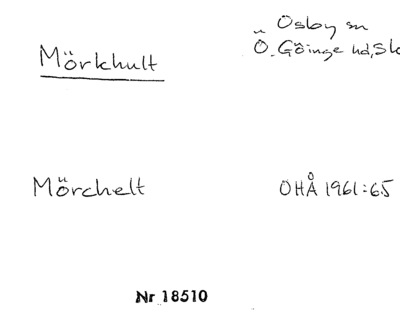 Osby sn
Mörkhult
Ö. Göinge hd, Sk
Mörchelt
OHÅ 1961:65
Nr 18510